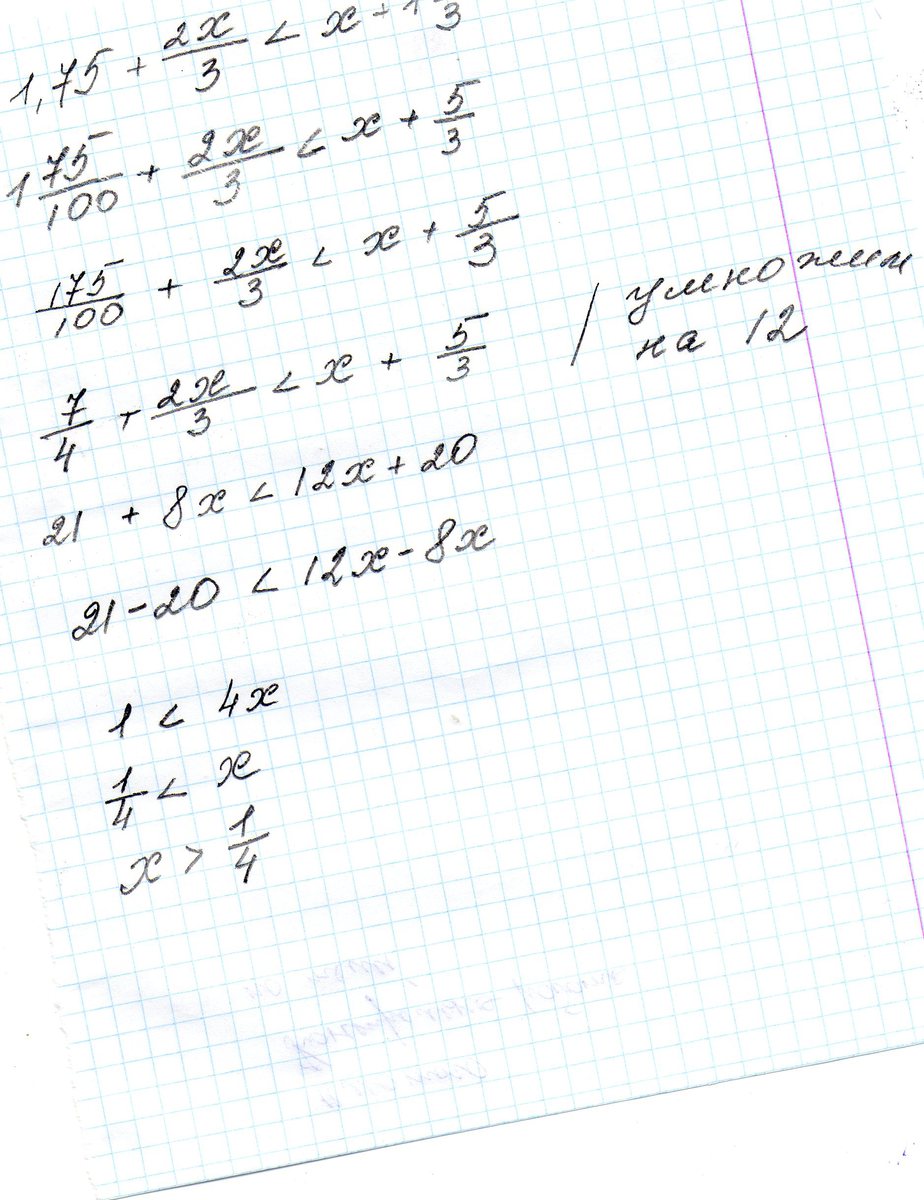 1,75 + 2x/3 < x + 1 /3
1 75/100 + 2x/3 < x + 5/3
175/100 + 2x/3 < x + 5/3
7/4 + 2x/3 < x + 5/3 / умножим
на 12
21 + 8x < 12x + 20
21 - 20 < 12x - 8x
1 < 4x
1/4 < x
x > 1/4